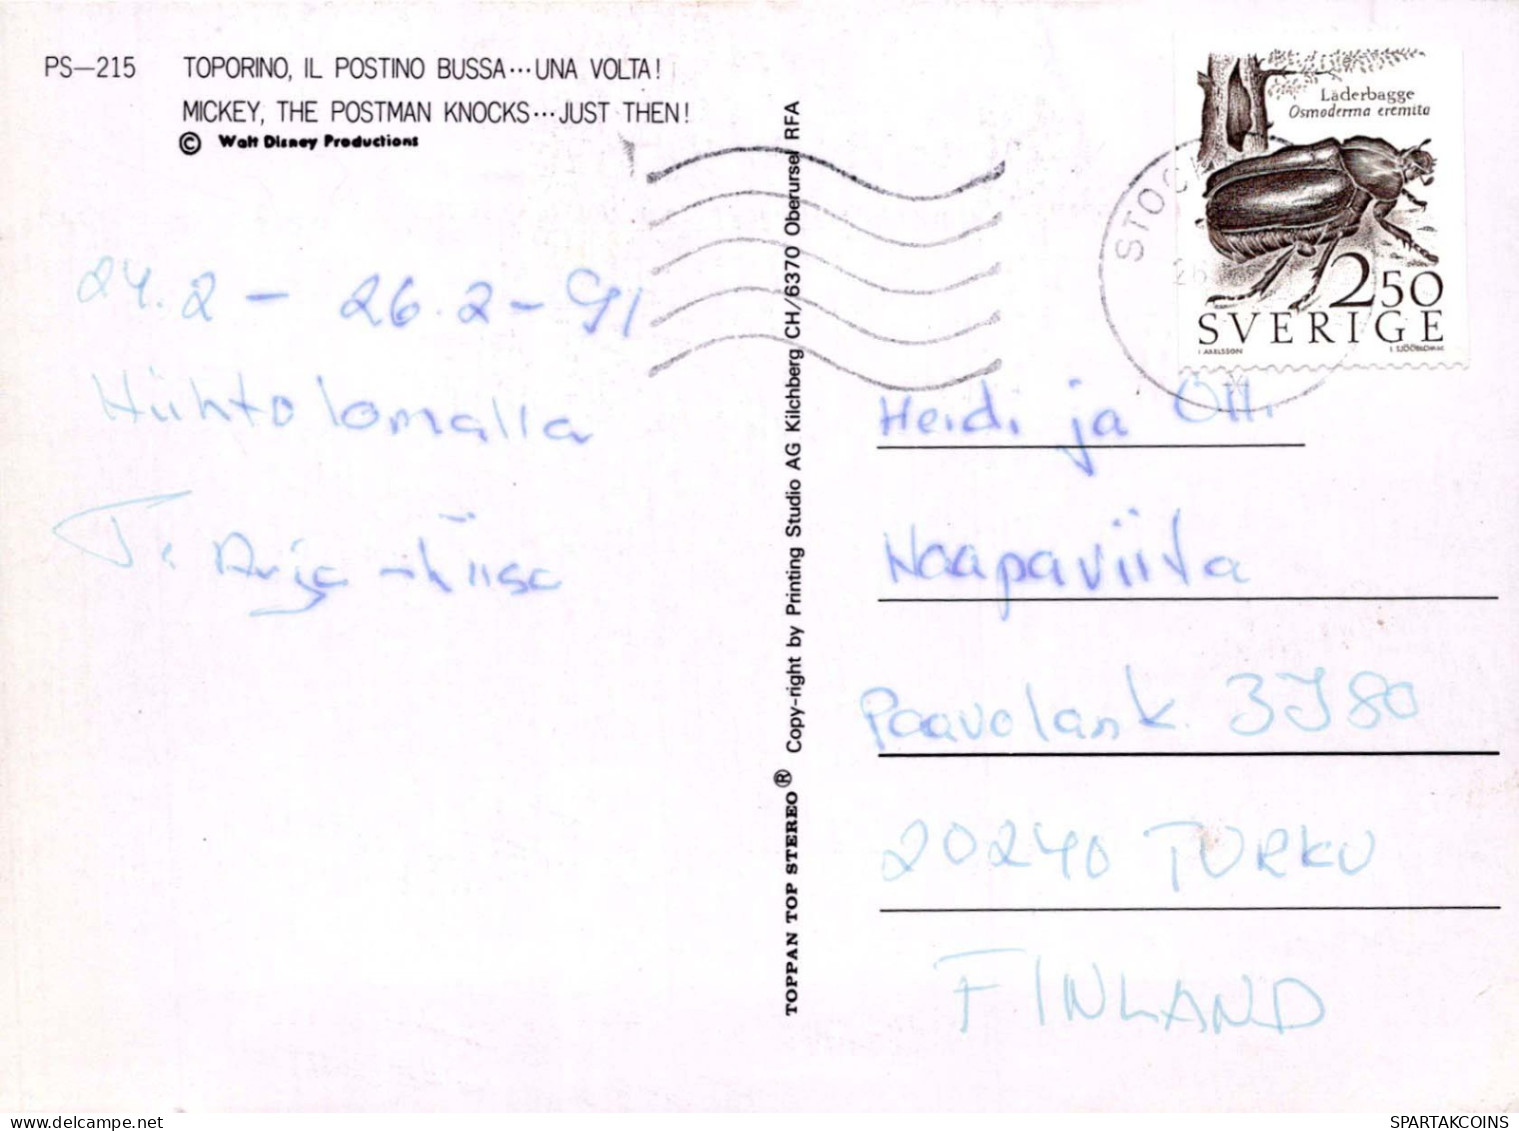 PS—215 TOPORINO, IL POSTINO BUSSA···UNA VOLTA!
MICKEY, THE POSTMAN KNOCKS···JUST THEN!
© Walt Disney Productions
24.2 – 26.2 – 91
Hiihtolomalla
T: Arja
TOPPAN TOP STEREO® Copy-right by Printing Studio AG Kilchberg CH/6370 Oberursel RFA
Läderbagge
Osmoderma eremita
250
SVERIGE
I. AXELSSON
STOC
26
Heidi ja Olli
Naapaviita
Paavolank.
20240 TURKU
FINLAND
SPARTAKCOINS.DELCAMPE.NET